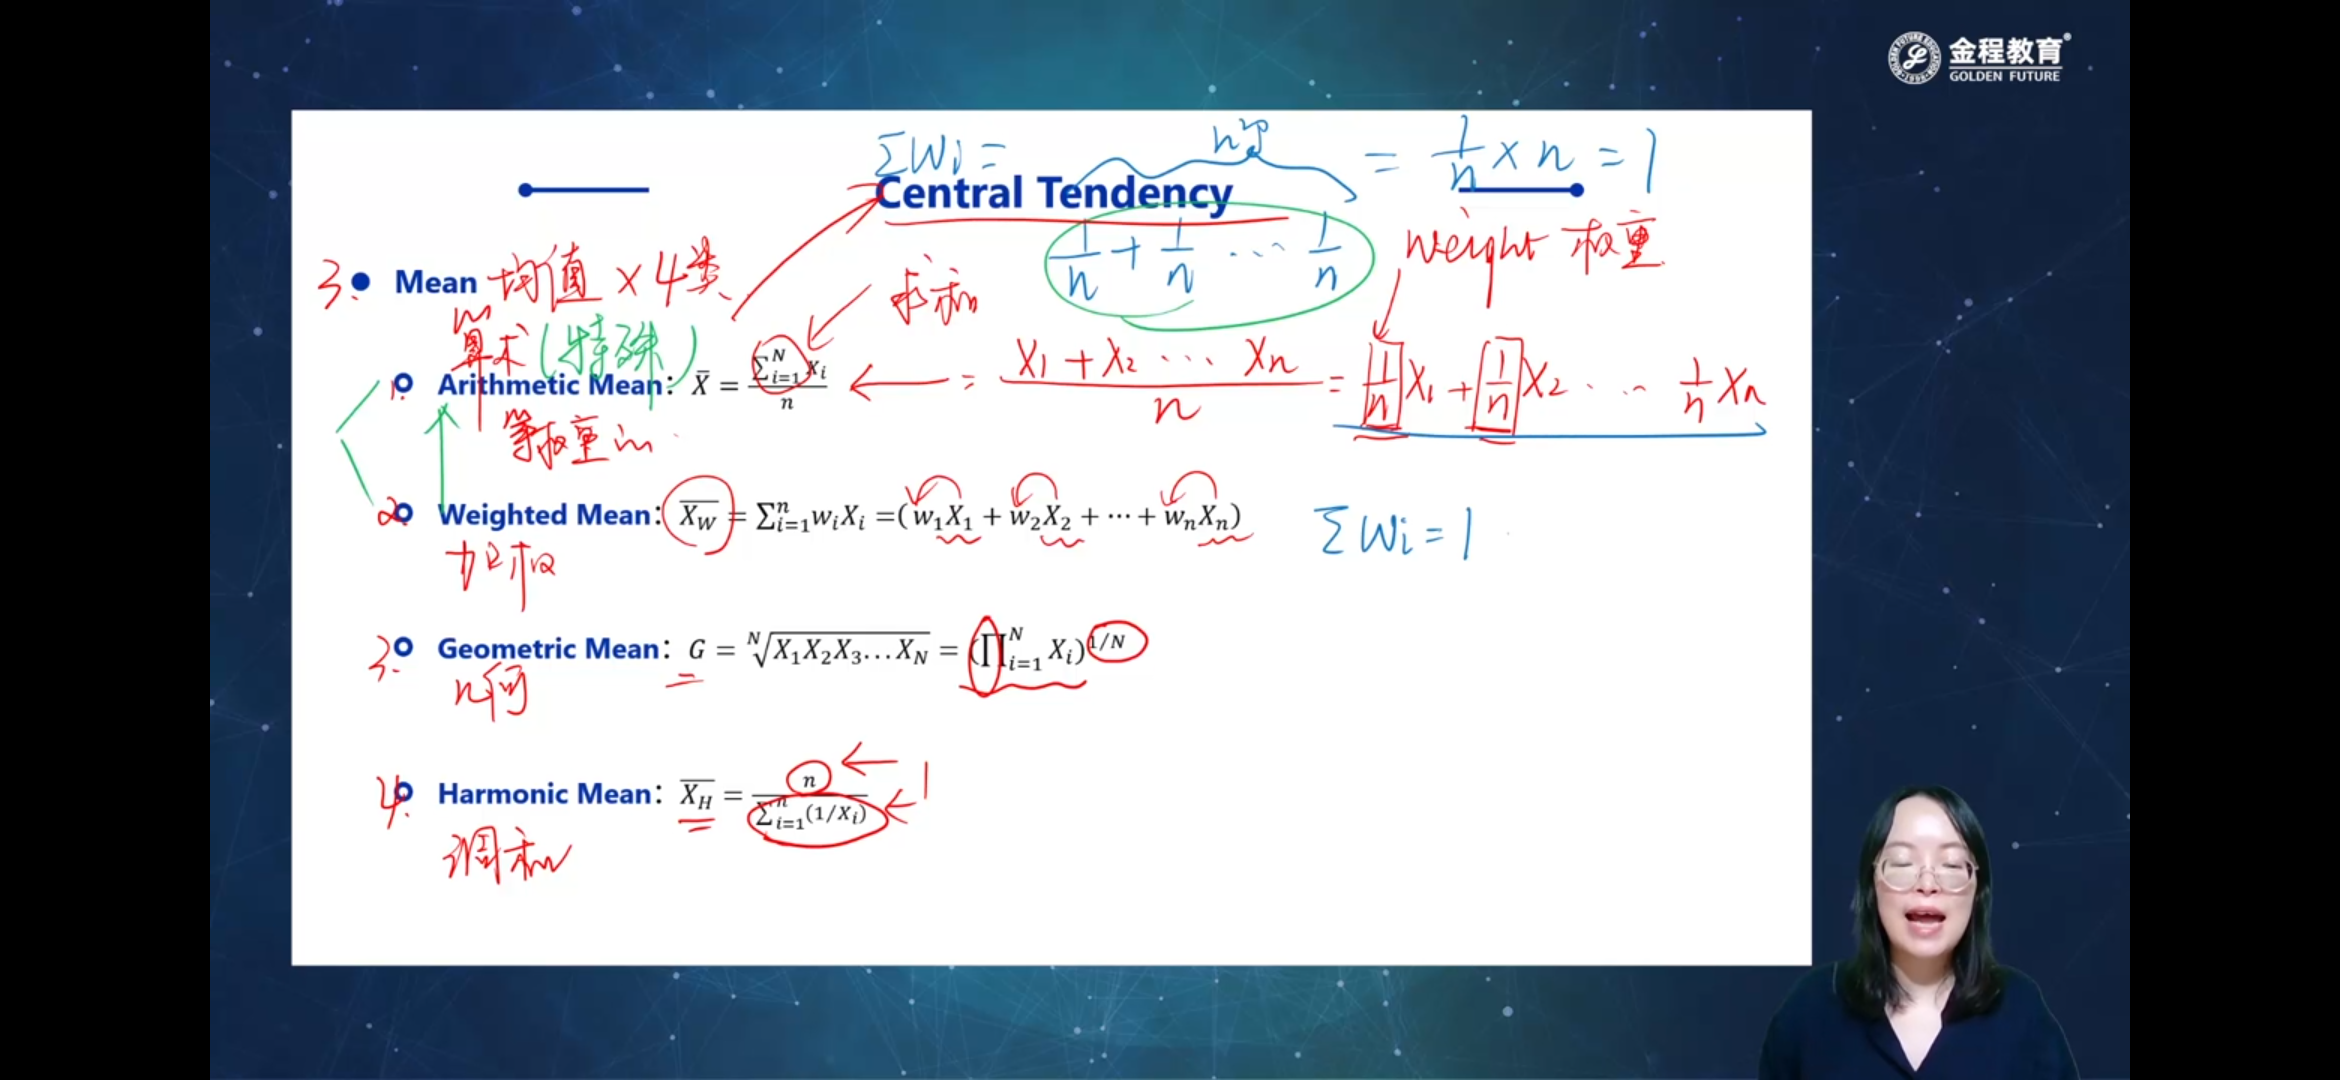 金程教育
GOLDEN FUTURE
ΣWi = n个 = 1/n × n = 1
Central Tendency
1/n + 1/n … 1/n
weight 权重
3. Mean 均值 × 4类
算术 (特殊)
求和
1. Arithmetic Mean: X̄ = ∑ᵢ₌₁ᴺ Xᵢ / n = X₁ + X₂ … Xn / n = 1/n X₁ + 1/n X₂ … 1/n Xn
等权重
2. Weighted Mean: X̄_W = ∑ᵢ₌₁ⁿ wᵢXᵢ =(w₁X₁ + w₂X₂ + ⋯ + wₙXₙ) ΣWi = 1
加权
3. Geometric Mean: G = ᴺ√X₁X₂X₃…X_N = (∏ᵢ₌₁ᴺ Xᵢ)^1/N
几何
4. Harmonic Mean: X̄_H = n / ∑ᵢ₌₁ⁿ(1/Xᵢ)
调和